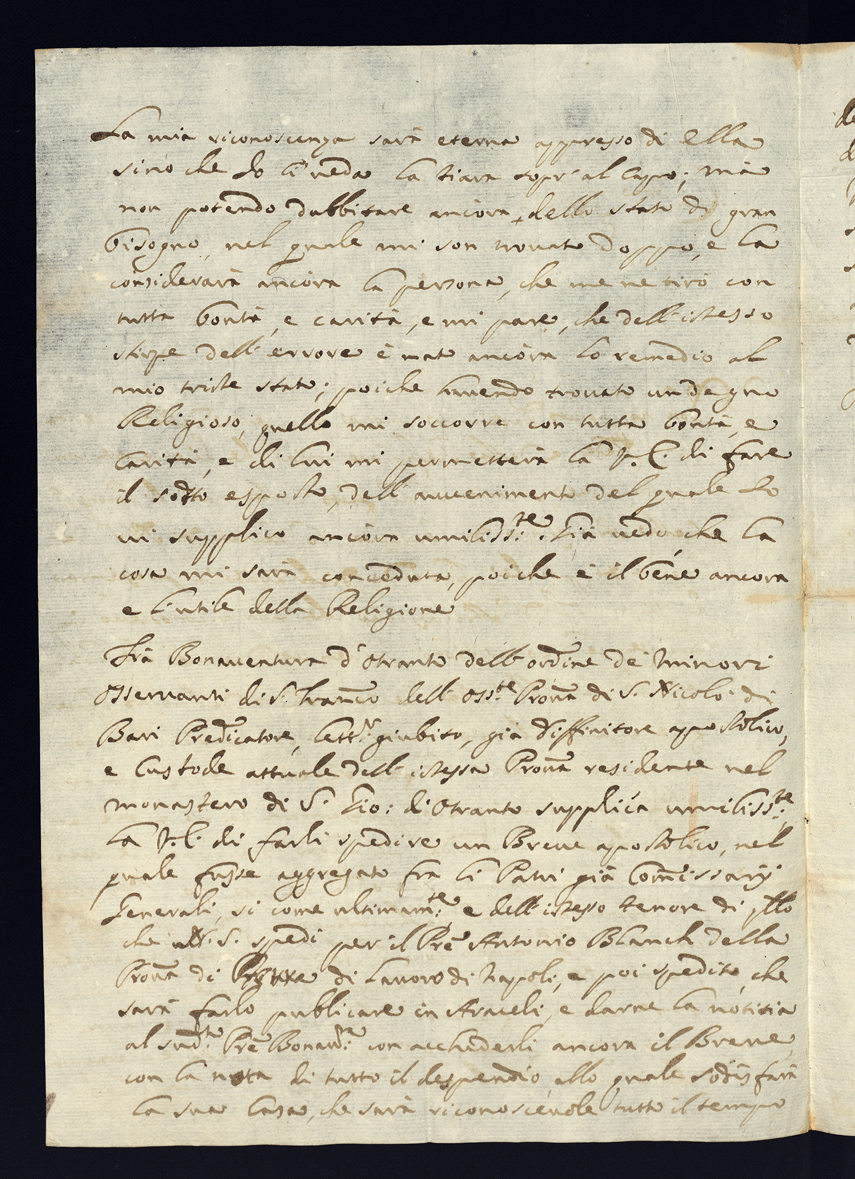 La mia riconoscenza sarà eterna appresso di ella
sino che Lo li ueda la tiara sopr' al Capo; mà
non potendo dubbitare ancora dello stato di gran
bisogno, nel quale mi son trouato doppo, e la
considerarà ancora la persona, che me ne tirò con
tutta bontà, e carità, e mi pare, che dell' istesso
stirpe dell' errore è nato ancora lo remedio al
mio triste stato; poiche hauendo trouato un degno
Religioso, quello mi soccorre con tutta bontà, e
Carità, e di lui mi permetterà la V. E. di fare
il sotto esposto, dell' auuenimento del quale Lo
ui supplico ancora umiliss:te. Già uedo, che la
cosa mi sarà conceduta, poiche è il bene ancora
e l'utile della Religione
Frà Bonauentura d'Otranto dell' ordine de' Minori
Osseruanti di S. Franco dell' Oss.te Proua di S. Nicolò di
Bari Predicatore, Lett.r giubito, già diffinitore apostolico,
e Custode attuale dell' istessa Proua residente nel
monastero di S. Gio: di Otranto supplica umiliss:te
la V. E. di farli spedire un Breue apostolico, nel
quale fusse aggregato frà li Patri già Comissarij
Generali, si come ultimam:te e dell' istesso tenore di qllo
che N. S. spedì per il Pre Antonio Blanch della
Proua di di Lauoro di Napoli, e poi spedito, che
sarà farlo publicare in Araceli, e darne la notitia
al sud:to Pre Bonau:ra con acchiuderli ancora il Breue,
con la nota di tutto il despendio allo quale sodisfarà
la sua Casa, che sarà riconosceuole tutto il tempo